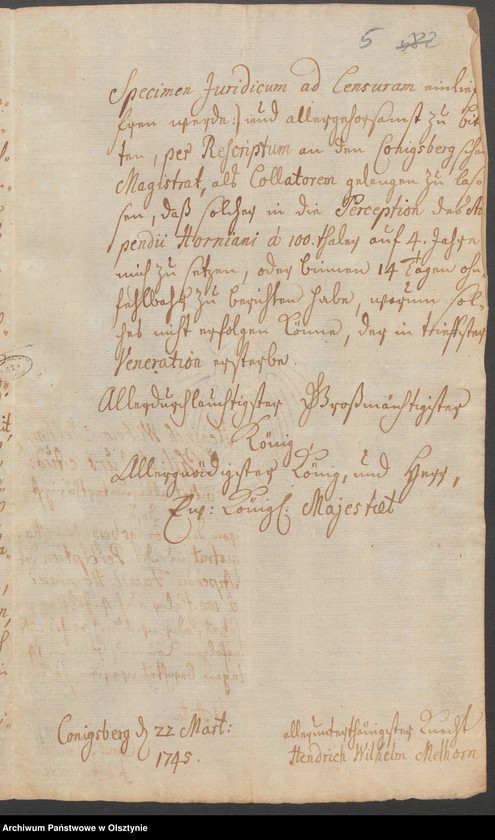 5 582
Specimen Juridicum ad Censuram einlie-
fren werde:) und allergehorsamst zu bit-
ten, per Rescriptum an den Conigsberg'schen
Magistrat, als Collatorem gelangen zu las-
sen, daß solcher in die Perception des Sti-
pendii Horniani á 100. thaler auf 4. Jahre
mich zu setzen, oder binnen 14 Tagen ohn-
fehlbahr zu berichten habe, warum sol-
ches nicht erfolgen könne, der in tieffster
Veneration ersterbe.
Allerdurchlauchtigster Großmächtigster
König,
Allergnädigster König, und Herr,
Ew: Königl: Majestæt
Conigsberg d 22 Mart:
1745.
allerunterthänigster Knecht
Hendrich Wilhelm Melhorn
Archiwum Państwowe w Olsztynie